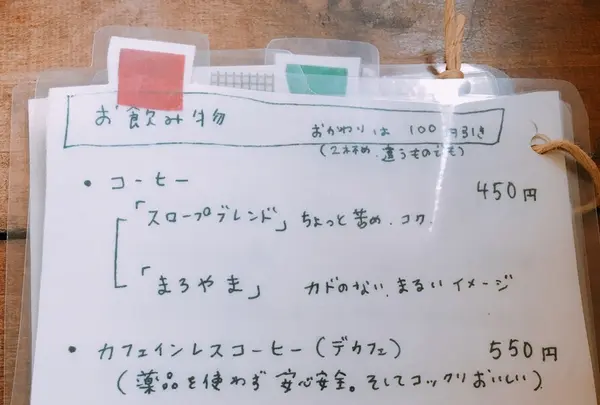 お飲み物
おかわりは 100円引き
(2杯め、違うものでも)
・コーヒー 450円
「スロープブレンド」ちょっと苦め、コク
「まろやま」 カドのない、まるいイメージ
・カフェインレスコーヒー(デカフェ) 550円
(薬品を使わず安心安全。そしてコックリおいしい)